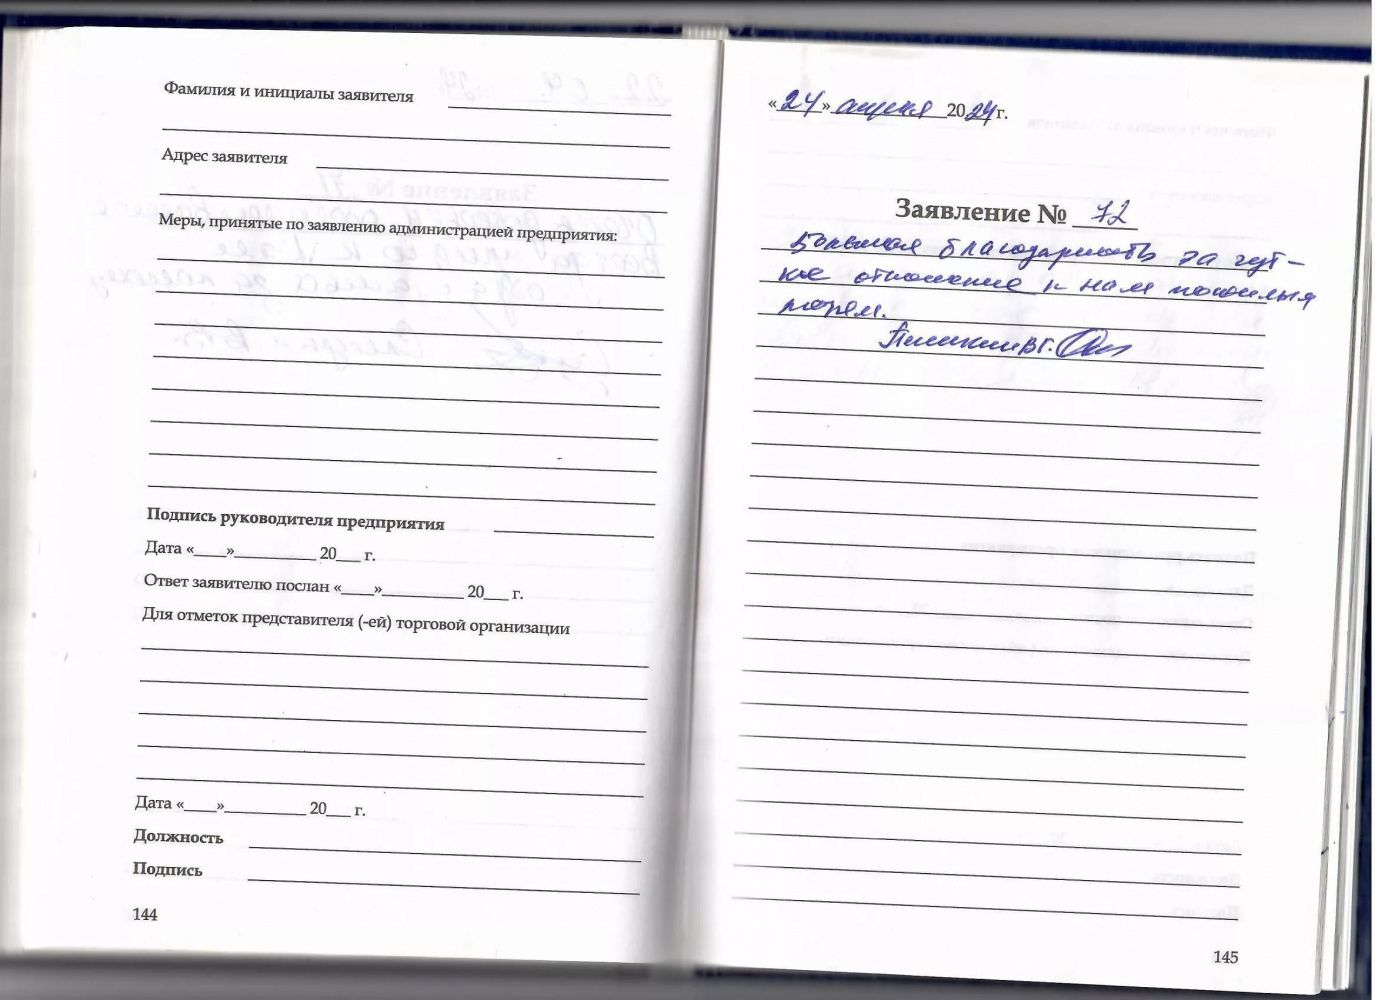 Фамилия и инициалы заявителя
Адрес заявителя
Меры, принятые по заявлению администрацией предприятия:
Подпись руководителя предприятия
Дата «___»_________ 20___ г.
Ответ заявителю послан «___»_________ 20___ г.
Для отметок представителя (-ей) торговой организации
Дата «___»_________ 20___ г.
Должность
Подпись
144
«24» апреля 2024 г.
Заявление № 72
Большая благодарность за чут-
кое отношение к нам пожилым
людям.
145